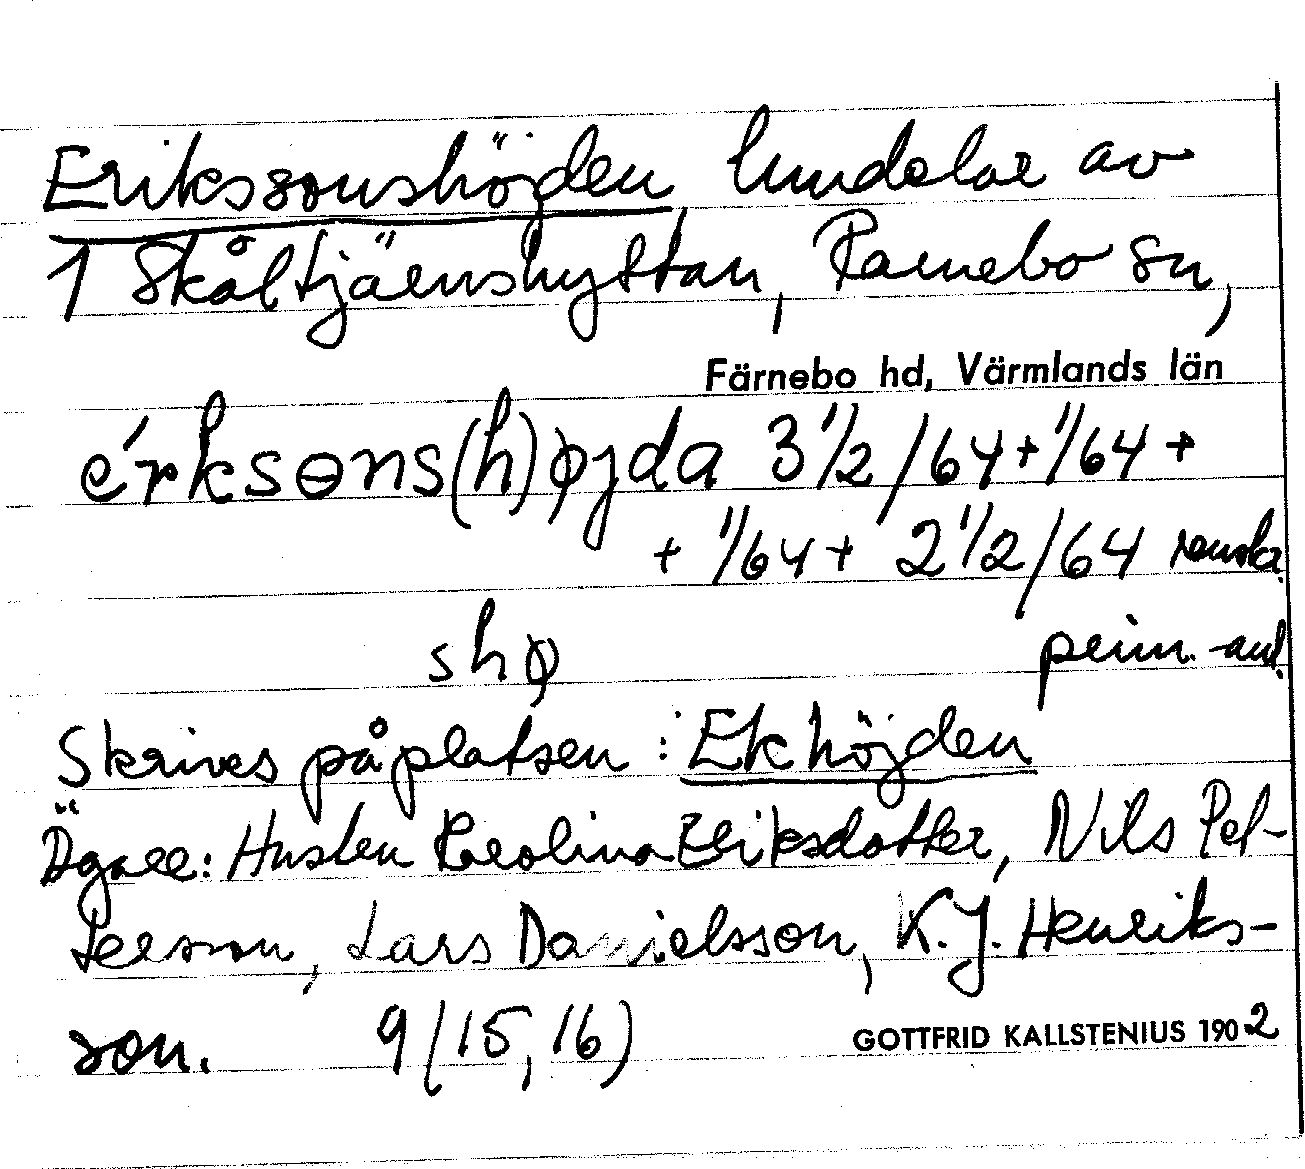 Erikssonshöjden hmdelar av
1 Skåltjärnshyttan, Ramebo sn,
Färnebo hd, Värmlands län
érksɵns(h)øjda 3 1/2/64+1/64+
+ 1/64+ 2 1/2/64
shø
Skrives på platsen : Ekhöjden
Ägare: Hustru Karolina Eriksdotter, Nils Pet-
tersson, Lars Danielsson, K.J. Henriks-
son. 9(15,16)
GOTTFRID KALLSTENIUS 1902